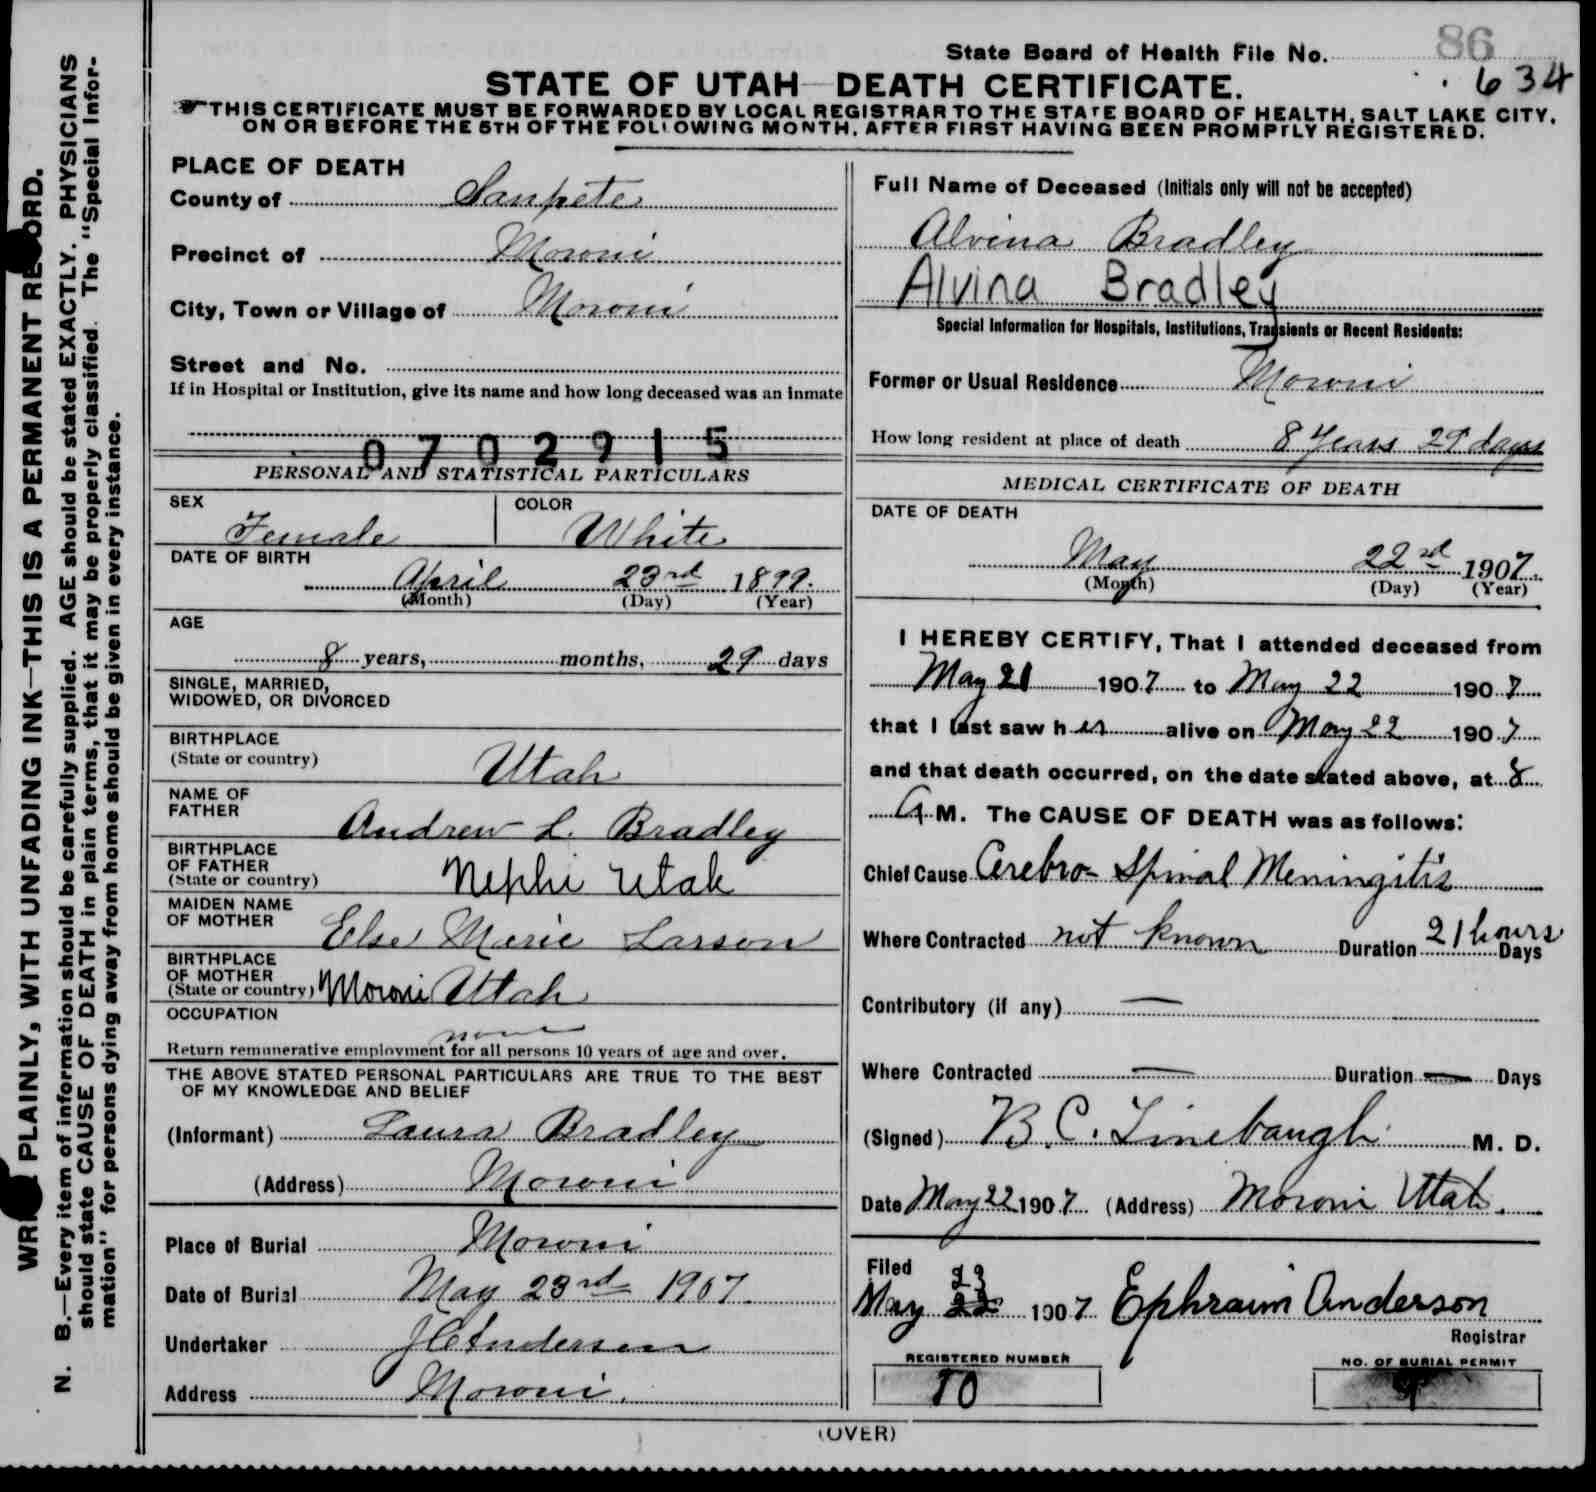 WRITE PLAINLY, WITH UNFADING INK—THIS IS A PERMANENT RECORD.
N. B.—Every item of information should be carefully supplied. AGE should be stated EXACTLY. PHYSICIANS
should state CAUSE OF DEATH in plain terms, that it may be properly classified. The "Special Infor-
mation" for persons dying away from home should be given in every instance.
86
State Board of Health File No.
634
STATE OF UTAH—DEATH CERTIFICATE.
THIS CERTIFICATE MUST BE FORWARDED BY LOCAL REGISTRAR TO THE STATE BOARD OF HEALTH, SALT LAKE CITY,
ON OR BEFORE THE 5TH OF THE FOLLOWING MONTH, AFTER FIRST HAVING BEEN PROMPTLY REGISTERED.
PLACE OF DEATH
County of Sanpete
Precinct of Moroni
City, Town or Village of Moroni
Street and No.
If in Hospital or Institution, give its name and how long deceased was an inmate
0702915
PERSONAL AND STATISTICAL PARTICULARS
SEX COLOR
Female White
DATE OF BIRTH
April 23rd 1899.
(Month) (Day) (Year)
AGE
8 years, months, 29 days
SINGLE, MARRIED,
WIDOWED, OR DIVORCED
BIRTHPLACE
(State or country) Utah
NAME OF
FATHER Andrew L. Bradley
BIRTHPLACE
OF FATHER
(State or country) Nephi Utah
MAIDEN NAME
OF MOTHER Else Marie Larson
BIRTHPLACE
OF MOTHER
(State or country) Moroni Utah
OCCUPATION
none
Return remunerative employment for all persons 10 years of age and over.
THE ABOVE STATED PERSONAL PARTICULARS ARE TRUE TO THE BEST
OF MY KNOWLEDGE AND BELIEF
(Informant) Laura Bradley
(Address) Moroni
Place of Burial Moroni
Date of Burial May 23rd 1907
Undertaker J C Anderson
Address Moroni.
Full Name of Deceased (Initials only will not be accepted)
Alvina Bradley
Alvina Bradley
Special Information for Hospitals, Institutions, Transients or Recent Residents:
Former or Usual Residence Moroni
How long resident at place of death 8 Years 29 days
MEDICAL CERTIFICATE OF DEATH
DATE OF DEATH
May 22nd 1907.
(Month) (Day) (Year)
I HEREBY CERTIFY, That I attended deceased from
May 21 1907 to May 22 1907
that I last saw her alive on May 22 1907
and that death occurred, on the date stated above, at 8
A M. The CAUSE OF DEATH was as follows:
Chief Cause Cerebro-Spinal Meningitis
Where Contracted not known Duration 21 hours Days
Contributory (if any) —
Where Contracted — Duration — Days
(Signed) B. C. Linebaugh M. D.
Date May 22 1907 (Address) Moroni Utah.
Filed 23
May 22 1907 Ephraim Anderson
Registrar
REGISTERED NUMBER NO. OF BURIAL PERMIT
10 9
(OVER)